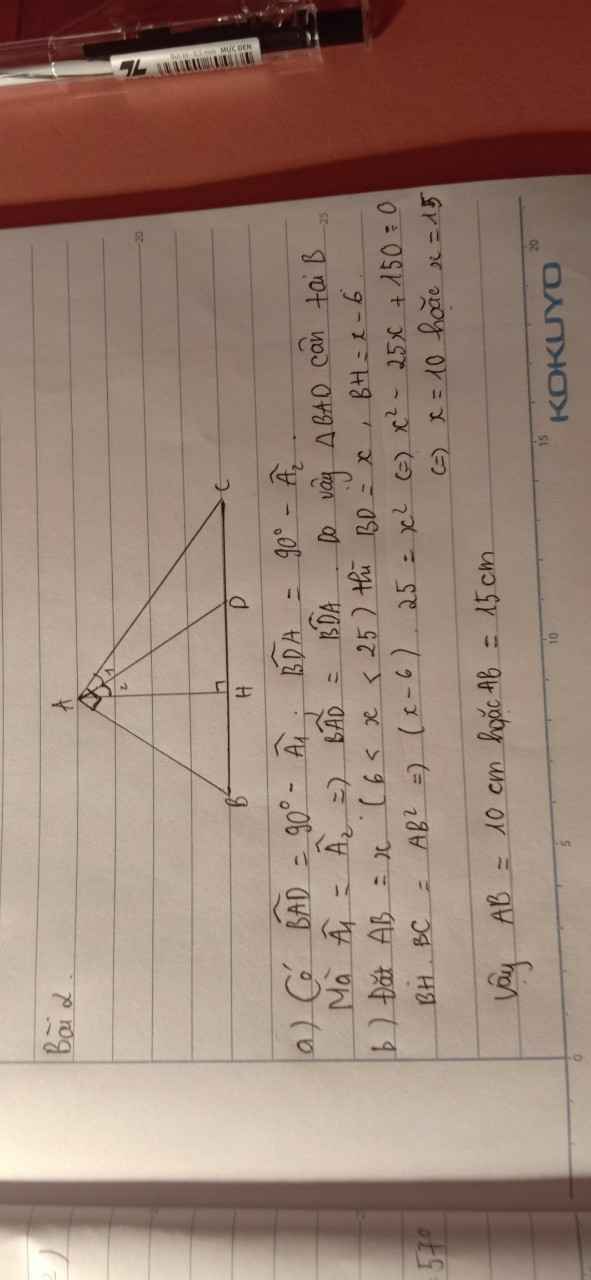 Bài 2.
A
1
2
B H D C
a) Có B̂AD = 90° - Â₁. B̂DA = 90° - Â₂.
Mà Â₁ = Â₂ => B̂AD = B̂DA. Do vậy ΔBAD cân tại B
b) Đặt AB = x (6 < x < 25) thì BD = x, BH = x - 6.
BH. BC = AB² => (x-6). 25 = x² (=) x² - 25x + 150 = 0
(=) x = 10 hoặc x = 15
Vậy AB = 10 cm hoặc AB = 15 cm
KOKUYO
0 5 10 15 20
20
25
MỰC ĐEN
57°